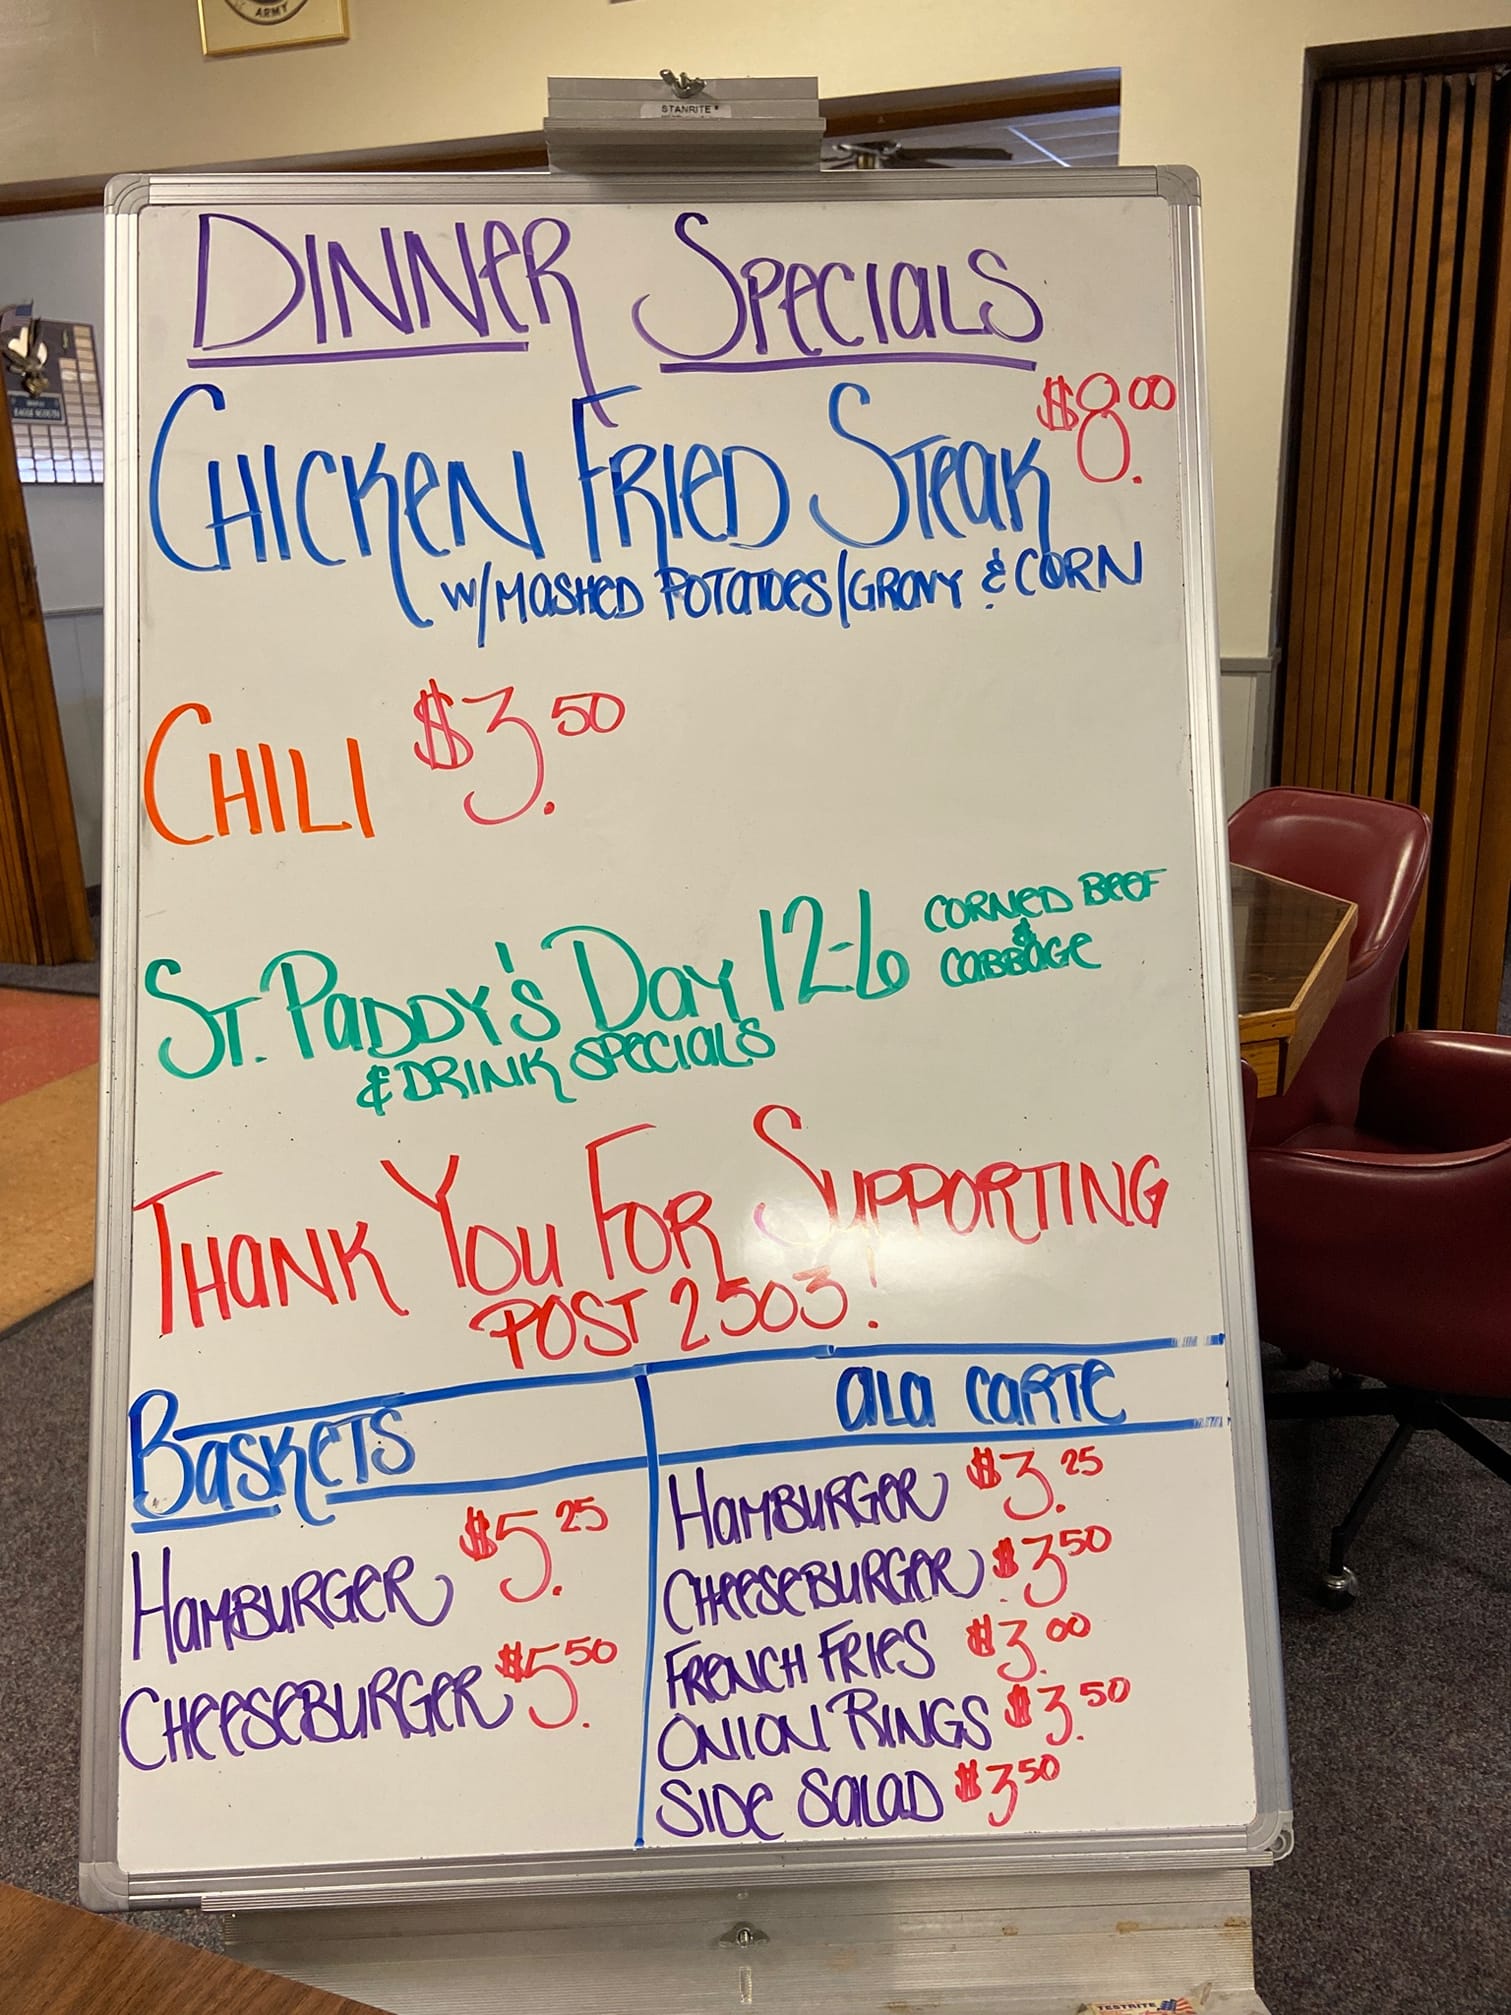 ARMY
STANRITE
DINNER SPECIALS
CHICKEN FRIED STEAK $8.00
W/MASHED POTATOES/GRAVY & CORN
CHILI $3.50
ST. PADDY'S DAY 12-6 CORNED BEEF
&
CABBAGE
& DRINK SPECIALS
THANK YOU FOR SUPPORTING
POST 2503!
BASKETS
HAMBURGER $5.25
CHEESEBURGER $5.50
ALA CARTE
HAMBURGER $3.25
CHEESEBURGER $3.50
FRENCH FRIES $3.00
ONION RINGS $3.50
SIDE SALAD $3.50
TESTRITE